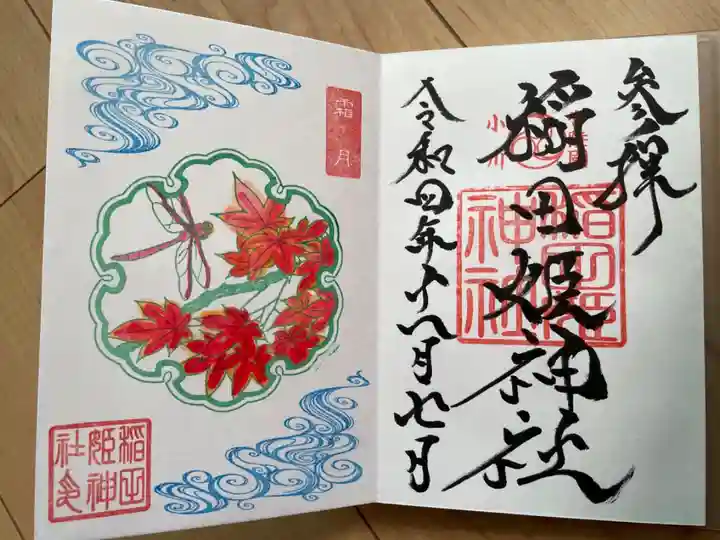 参拝
稲田姫神社
稲田姫
神社
令和四年十一月七日
霜月
稲田
姫神
社印